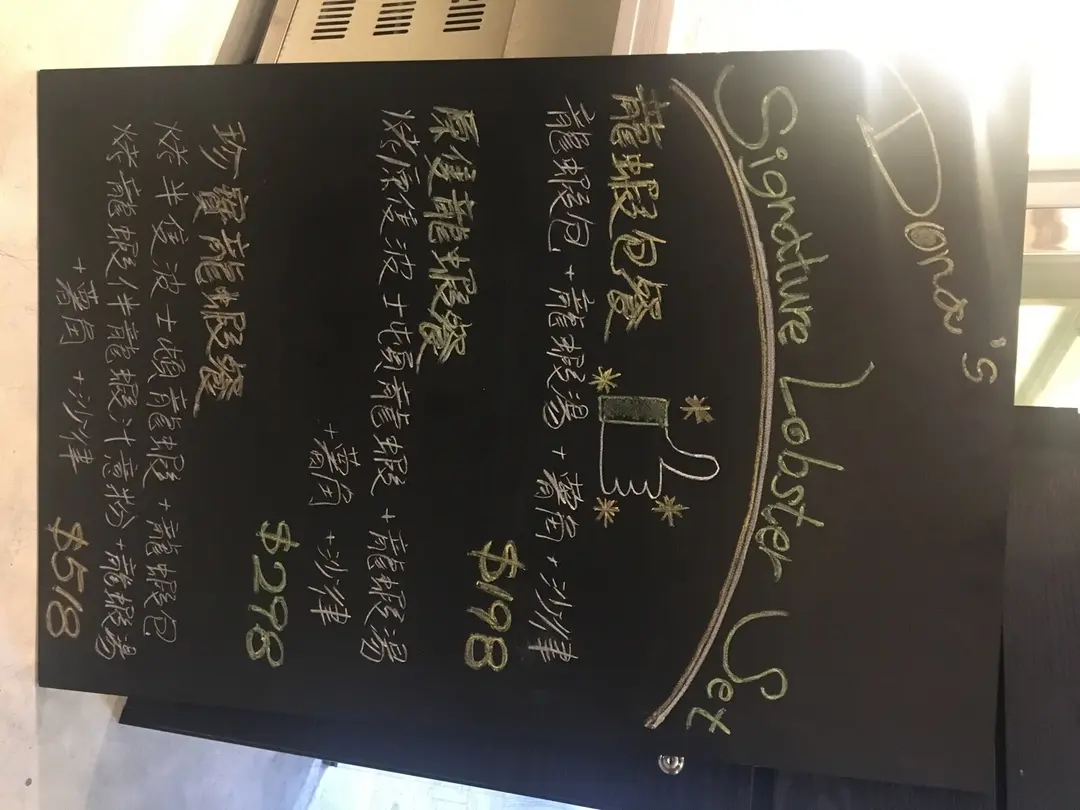 Dona's
Signature Lobster Set
龍蝦包餐
龍蝦包 + 龍蝦湯 + 薯角 + 沙律
$198
原隻龍蝦餐
烤原隻波士頓龍蝦 + 龍蝦湯
+ 薯角 + 沙律
$298
珍寶龍蝦餐
烤半隻波士頓龍蝦 + 龍蝦包
烤龍蝦伴龍蝦汁意粉 + 龍蝦湯
+ 薯角 + 沙律
$518